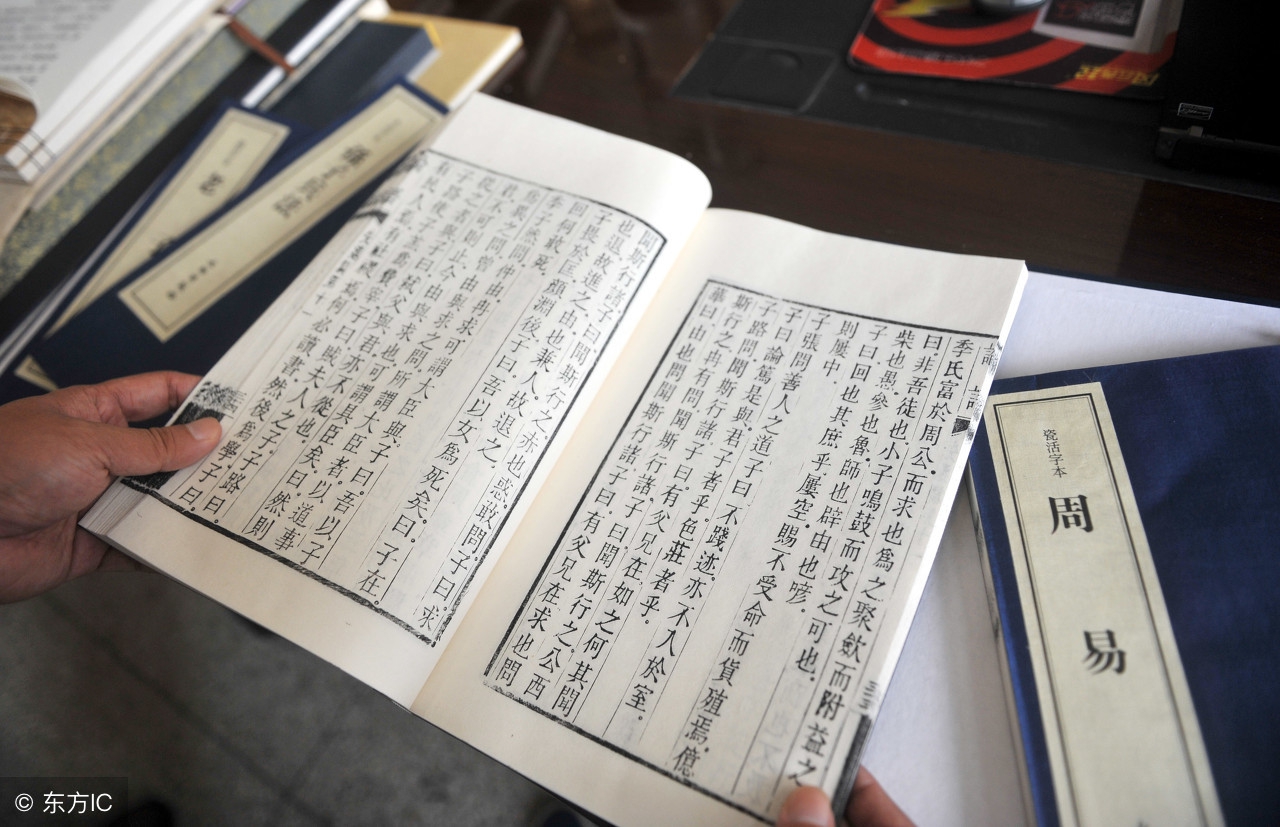 季氏富於周公。而求也為之聚斂而附益之
曰非吾徒也。小子鳴鼓而攻之可也。
柴也愚。參也魯。師也辟。由也喭。
子曰回也其庶乎。屢空。賜不受命而貨殖焉。億
則屢中。
子張問善人之道。子曰。不踐迹。亦不入於室。
子曰。論篤是與。君子者乎。色莊者乎。
子路問聞斯行諸。子曰。有父兄在。如之何其聞
斯行之。冉有問聞斯行諸。子曰。聞斯行之。公西
華曰。由也問聞斯行諸。子曰。有父兄在。求也問
聞斯行諸。子曰。聞斯行之。赤也惑。敢問。子曰。求
也退。故進之。由也兼人。故退之。
子畏於匡。顏淵後。子曰。吾以女為死矣。曰。子在。
回何敢死。
季子然問。仲由冉求。可謂大臣與。子曰。吾以子
為異之問。曾由與求之問。所謂大臣者。以道事
君。不可則止。今由與求也。可謂具臣矣。曰。然則
從之者與。子曰。弒父與君。亦不從也。
子路使子羔為費宰。子曰。賊夫人之子。子路曰。
有民人焉。有社稷焉。何必讀書。然後為學。子曰。
瓷活字本
周易
© 东方IC